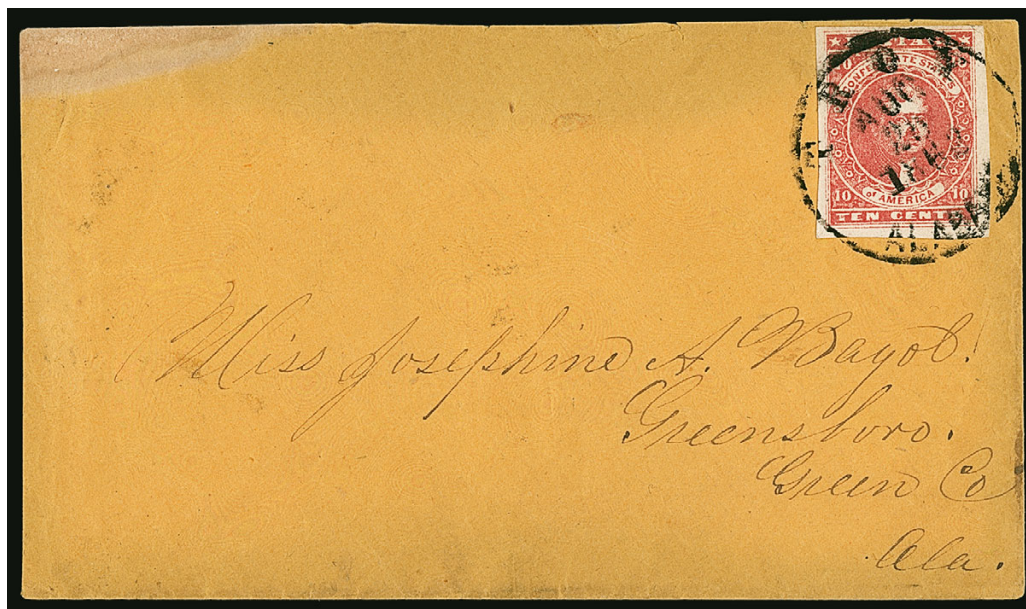 TROY
AUG
1862
ALABAMA
CONFEDERATE STATES
OF AMERICA
10 10
TEN CENTS
Miss Josephine A. Bayol.
Greensboro.
Green Co
Ala.